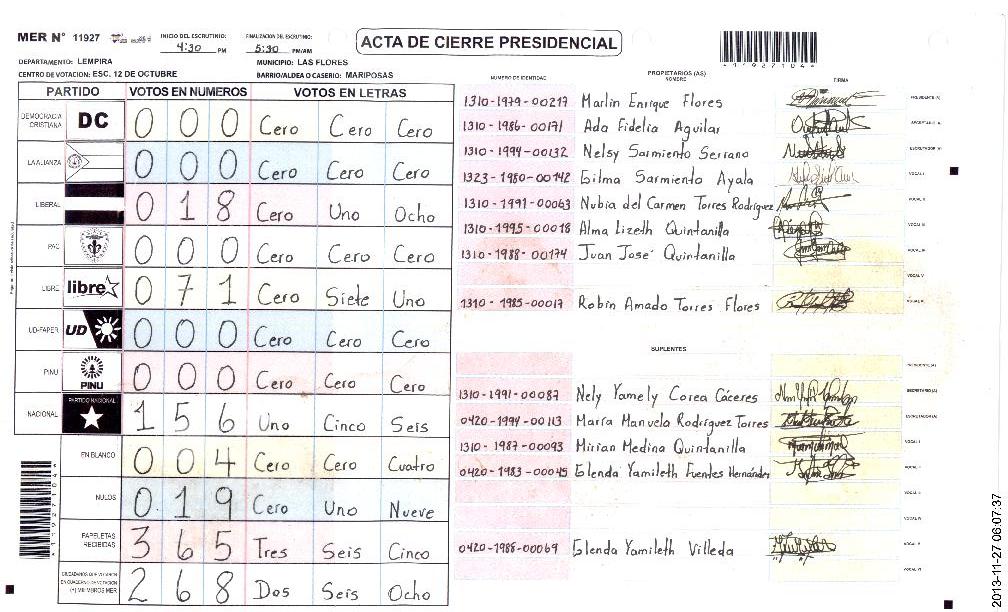 MER N° 11927
INICIO DEL ESCRUTINIO: 4:30 PM
FINALIZACION DEL ESCRUTINIO: 5:30 PM/AM
ACTA DE CIERRE PRESIDENCIAL
*11927104*
DEPARTAMENTO: LEMPIRA
MUNICIPIO: LAS FLORES
CENTRO DE VOTACION: ESC. 12 DE OCTUBRE
BARRIO/ALDEA O CASERIO: MARIPOSAS
PARTIDO VOTOS EN NUMEROS VOTOS EN LETRAS
DEMOCRACIA CRISTIANA DC 0 0 0 Cero Cero Cero
LA ALIANZA 0 0 0 Cero Cero Cero
LIBERAL 0 1 8 Cero Uno Ocho
PAC 0 0 0 Cero Cero Cero
LIBRE libre 0 7 1 Cero Siete Uno
UD-FAPER UD 0 0 0 Cero Cero Cero
PINU PINU 0 0 0 Cero Cero Cero
NACIONAL PARTIDO NACIONAL 1 5 6 Uno Cinco Seis
EN BLANCO 0 0 4 Cero Cero Cuatro
NULOS 0 1 9 Cero Uno Nueve
PAPELETAS RECIBIDAS 3 6 5 Tres Seis Cinco
CIUDADANOS QUE VOTARON EN CUADERNO DE VOTACION (+) MIEMBROS MER 2 6 8 Dos Seis Ocho
*11927104*
NUMERO DE IDENTIDAD
PROPIETARIOS (AS)
NOMBRE
FIRMA
1310-1979-00217 Marlin Enrique Flores PRESIDENTE (A)
1310-1986-00171 Ada Fidelia Aguilar
1310-1994-00132 Nelsy Sarmiento Serrano ESCRUTADOR (A)
1323-1980-00142 Gilma Sarmiento Ayala VOCAL I
1310-1991-00063 Nubia del Carmen Torres Rodríguez VOCAL II
1310-1995-00018 Alma Lizeth Quintanilla VOCAL III
1310-1988-00174 Juan José Quintanilla VOCAL IV
VOCAL V
1310-1985-00017 Robin Amado Torres Flores VOCAL VI
SUPLENTES
PRESIDENTE (A)
1310-1991-00087 Nely Yamely Corea Cáceres SECRETARIO (A)
0420-1994-00113 María Manuela Rodríguez Torres ESCRUTADOR (A)
1310-1987-00093 Mirian Medina Quintanilla VOCAL I
0420-1983-00045 Glenda Yamileth Fuentes Hernández VOCAL II
VOCAL III
VOCAL IV
0420-1988-00069 Glenda Yamileth Villeda VOCAL V
VOCAL VI
2013-11-27 06:07:37